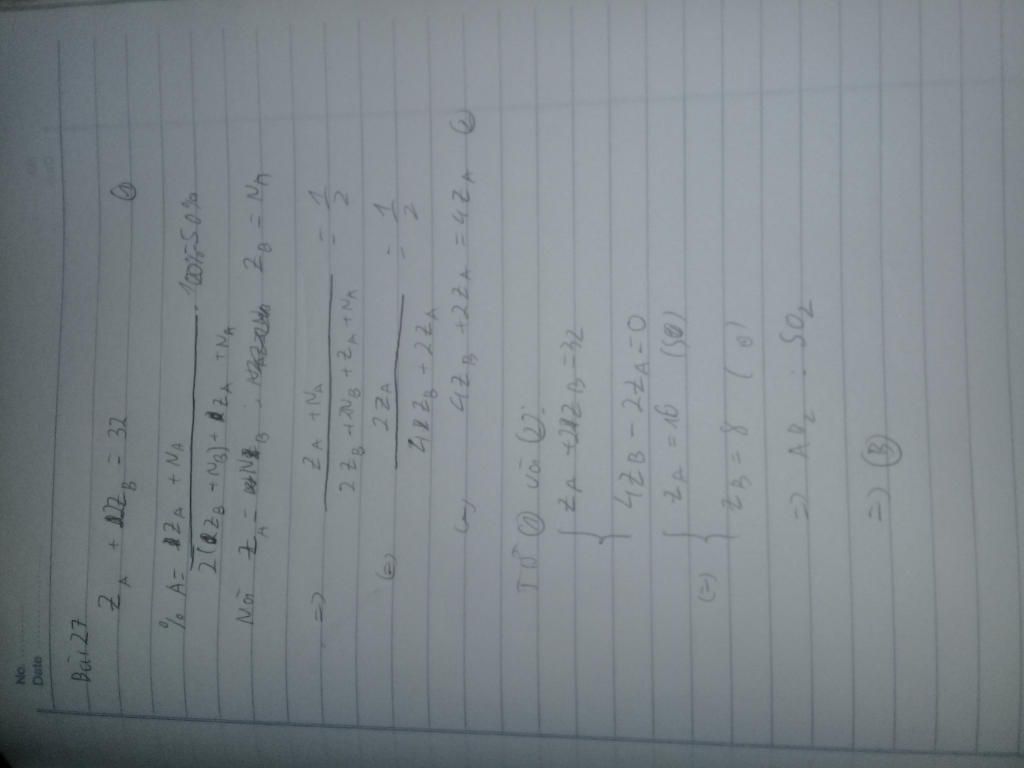 No.
Date
Bài 27
Z_A + 2Z_B = 32 (1)
% A = \frac{Z_A + N_A}{2(Z_B + N_B) + Z_A + N_A} . 100% = 50%
Z_A = Z_B = N_A
=> \frac{Z_A + N_A}{2Z_B + 2N_B + Z_A + N_A} = \frac{1}{2}
(=) \frac{2Z_A}{4Z_B + 2Z_A} = \frac{1}{2}
(=) 4Z_B + 2Z_A = 4Z_A (2)
Từ (1) và (2):
{ Z_A + 2Z_B = 32
4Z_B - 2Z_A = 0
(=) { Z_A = 16 (S)
Z_B = 8 (O)
=> AB_2 : SO_2
=> (B)